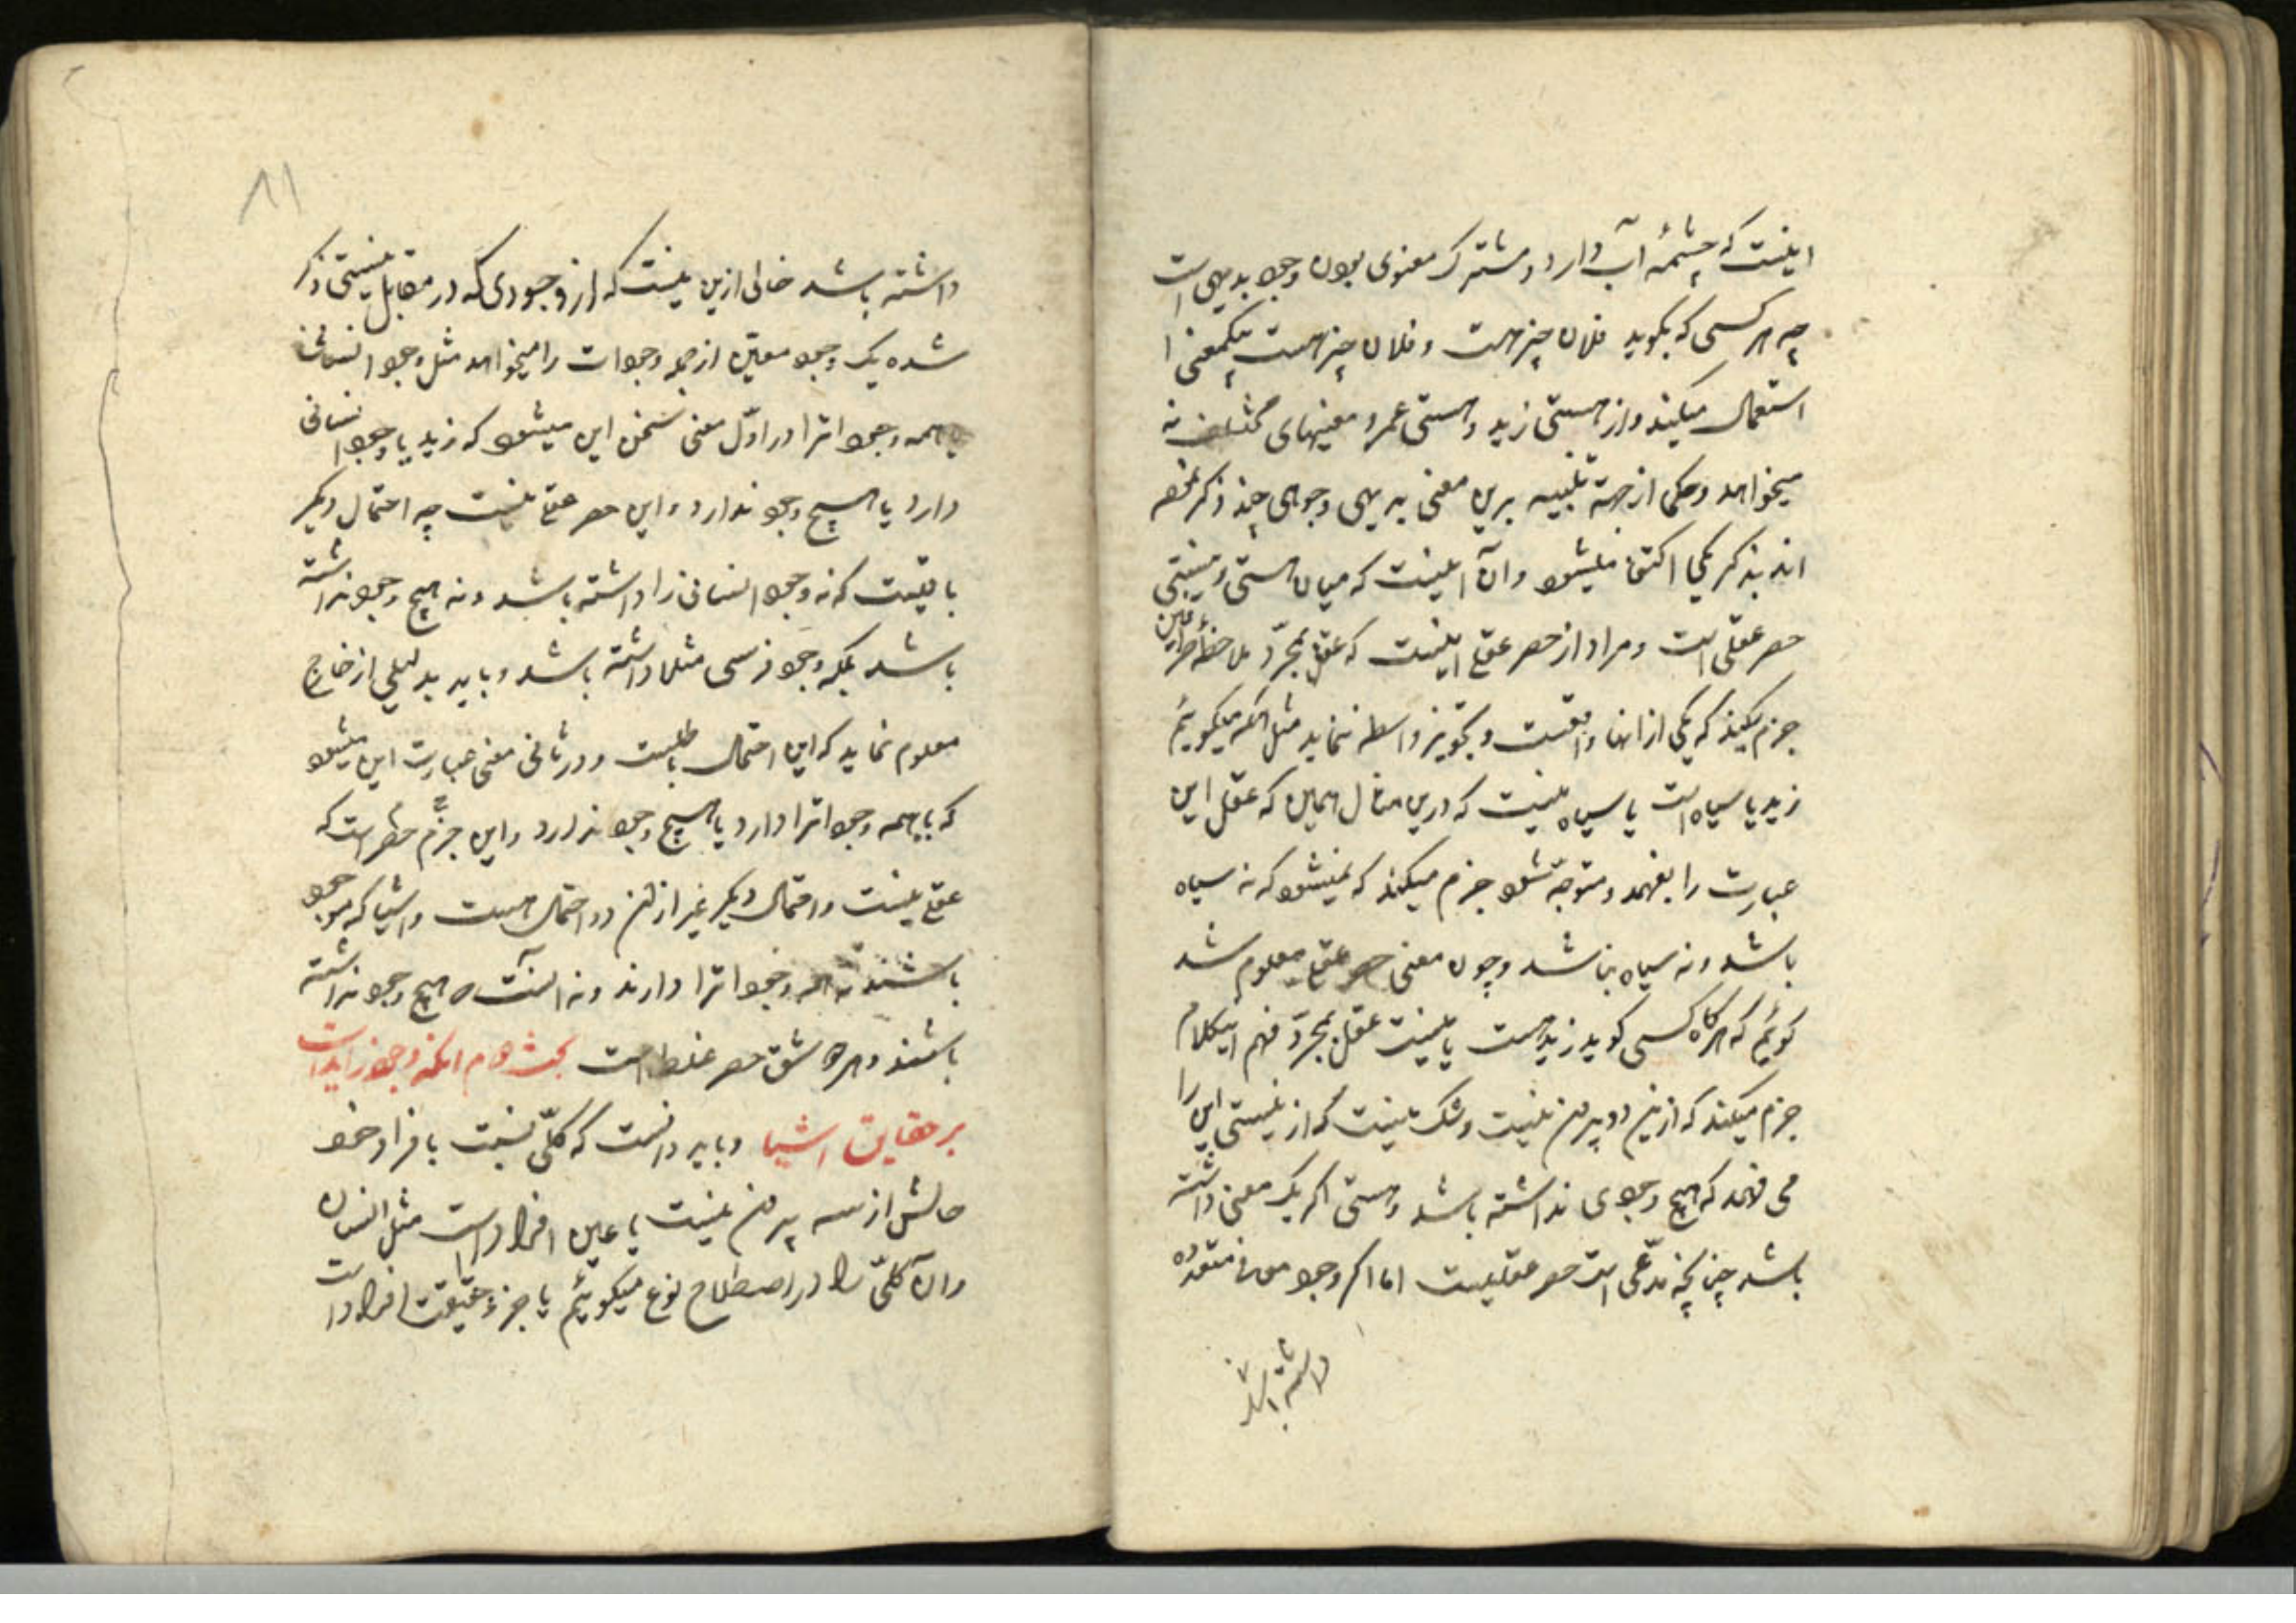 اینست که چشمهٔ آب دارد و مشترک معنوی بودن وجود بدیهی است
چه هر کسی که بگوید فلان چیز هست و فلان چیز هست یکمعنی را
استعمال میکند و از هستی زید و هستی عمرو معنیهای مختلف نه
میخواهد و حکما از جهة تنبیه برین معنی بدیهی وجوهی چند ذکر
اند بذکر یکی اکتفا میشود و آن اینست که میان هستی و نیستی
حصر عقلی است و مراد از حصر عقلی اینست که عقل بمجرّد ملاحظهٔ طرفین
جزم میکند که یکی از انها واقعست و تجویز واسطه ننماید مثل انکه میکوییم
زید یا سیاه است یا سیاه نیست که درین مثال همین که عقل این
عبارت را بفهمد و متوجه شود جزم میکند که نمیشود که نه سیاه
باشد و نه سیاه نباشد و چون معنی حصر عقلی معلوم شد
کوئیم که هرکاه کسی کوید زید هست یا نیست عقل بمجرّد فهم اینکلام
جزم میکند که ازین دو بیرون نیست و شک نیست که از نیستی این را
می فهمد که هیچ وجودی نداشته باشد و هستی اکر یک معنی داشته
باشد چنانچه مدّعی است حصر عقلیست اما اکر وجود معانی متعدده
داشته باشد
۸۱
داشته باشد خالی ازین نیست که از وجودی که در مقابل نیستی ذکر
شده یک وجود معیّن از جمله وجودات را میخواهد مثل وجود انسان یا
همه وجوداترا در اوّل معنی سخن این میشود که زید یا وجود انسانی
دارد یا هیچ وجود ندارد و این حصر عقلی نیست چه احتمال دیکر
باقیست که نه وجود انسانی را داشته باشد و نه هیچ وجود نداشته
باشد بلکه وجود فرسی مثلا داشته باشد و باید بدلیلی از خارج
معلوم نماید که این احتمال باطلست و در ثانی معنی عبارت این میشود
که یا همه وجوداترا دارد یا هیچ وجود ندارد و این حصر است که
عقلی نیست و احتمال دیکر غیر ازین دو احتمال هست و اشیا که موجود
باشند نه همه وجوداترا دارند و نه انست که هیچ وجود نداشته
باشند و هر دو شق حصر غلط است بحث دوم انکه وجود زایداست
بر حقایق اشیا و باید دانست که کلّی نسبت بافراد خود
حالش از سه بیرون نیست یا عین افراد است مثل انسان
و آن کلّی را در اصطلاح نوع میکوییم یا جزء حقیقت افراد است